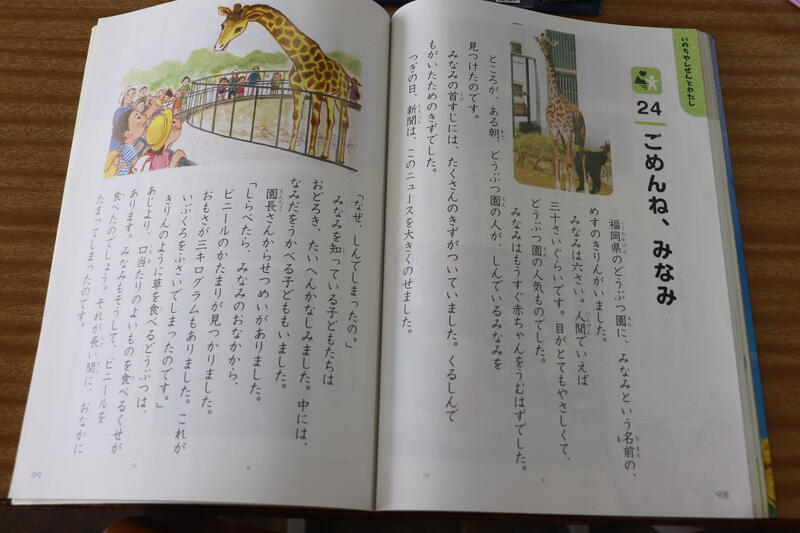 いのちやしぜんとわたし
24 ごめんね、みなみ
福岡県のどうぶつ園に、みなみという名前の、
めすのきりんがいました。
みなみは六さい。人間でいえば
三十さいぐらいです。目がとてもやさしくて、
どうぶつ園の人気ものでした。
みなみはもうすぐ赤ちゃんをうむはずでした。
ところが、ある朝、どうぶつ園の人が、しんでいるみなみを
見つけたのです。
みなみの首すじには、たくさんのきずがついていました。くるしんで
もがいたためのきずでした。
つぎの日、新聞は、このニュースを大きくのせました。
98
「なぜ、しんでしまったの。」
みなみを知っている子どもたちは
おどろき、たいへんかなしみました。中には、
なみだをうかべる子どももいました。
園長さんからせつめいがありました。
「しらべたら、みなみのおなかから、
ビニールのかたまりが見つかりました。
おもさが三キログラムもありました。これが
いぶくろをふさいでしまったのです。」
きりんのように草を食べるどうぶつは、
あじより、口当たりのよいものを食べるくせが
あります。みなみもそうして、ビニールを
食べたのでしょう。それが長い間に、おなかに
たまってしまったのです。
99